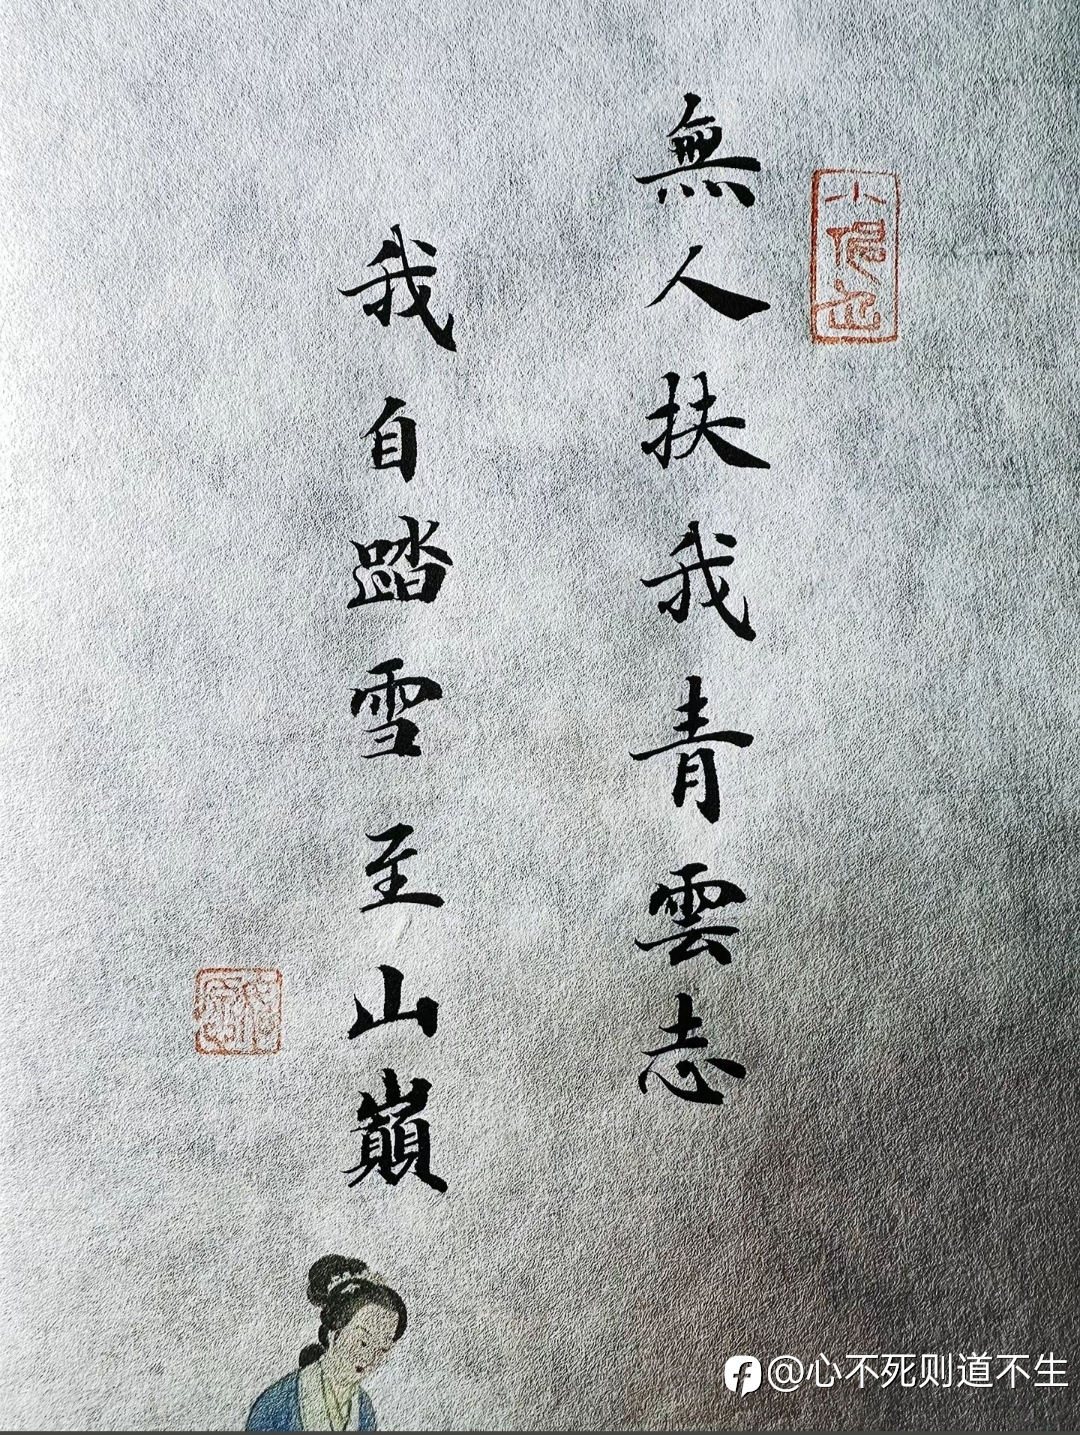 無人扶我青雲志
我自踏雪至山巔
@心不死则道不生